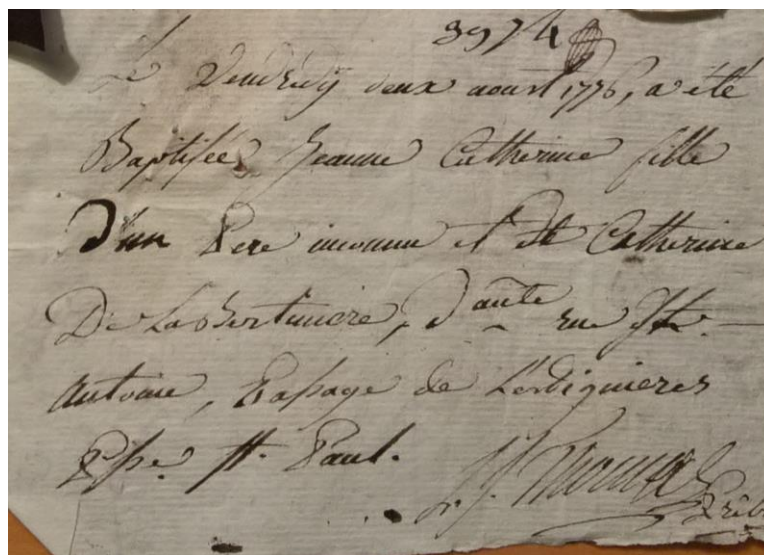 3974
Le Vendredy deux aoust 1776, a été
Baptisée Jeanne Catherine fille
D'un Pere inconnu et de Catherine
De La Bertiniere, Dte rue St.
Antoine, Passage de Lesdiguieres
Psse. St. Paul.
Thomas